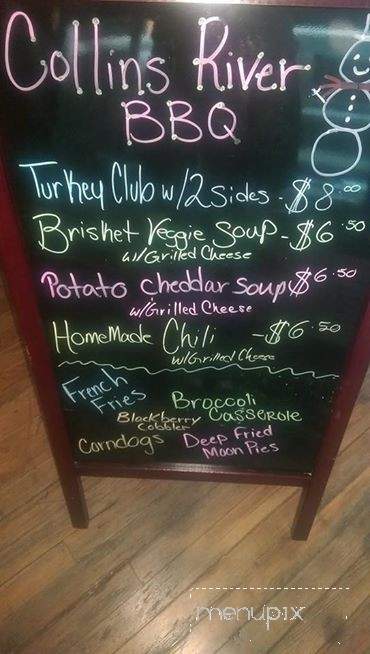 Collins River
BBQ
Turkey Club w/2 sides - $8.00
Brisket Veggie Soup - $6.50
w/Grilled Cheese
Potato Cheddar Soup $6.50
w/Grilled Cheese
HomeMade Chili - $6.50
w/Grilled Cheese
French
Fries
Broccoli
Casserole
Blackberry
Cobbler
Corndogs
Deep Fried
Moon Pies
menupix